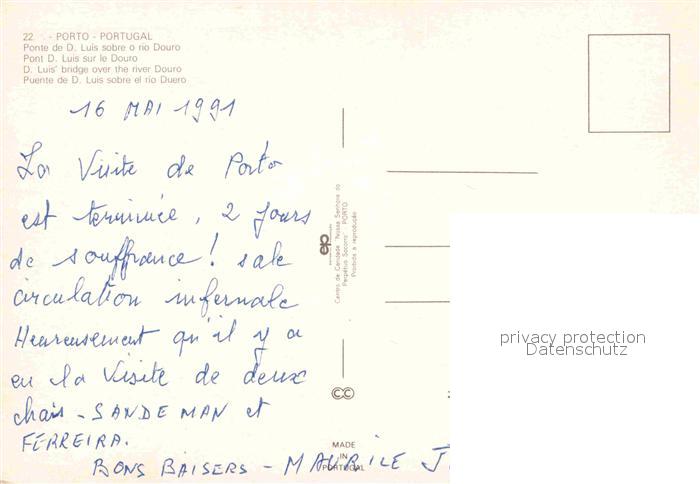 22 - PORTO - PORTUGAL
Ponte de D. Luis sobre o rio Douro
Pont D. Luis sur le Douro
D. Luis' bridge over the river Douro
Puente de D. Luis sobre el rio Duero
16 MAI 1991
La Visite de Porto
est terminée, 2 jours
de souffrance! sale
circulation infernale
Heureusement qu'il y a
eu la Visite de deux
chais - SANDEMAN et
FERREIRA.
BONS BAISERS - MAURICE J.
Centro de Caridade "Nossa Senhora do
Perpétuo Socorro" PORTO
Proibida a reprodução
ep
CC
MADE
IN
PORTUGAL
privacy protection
Datenschutz